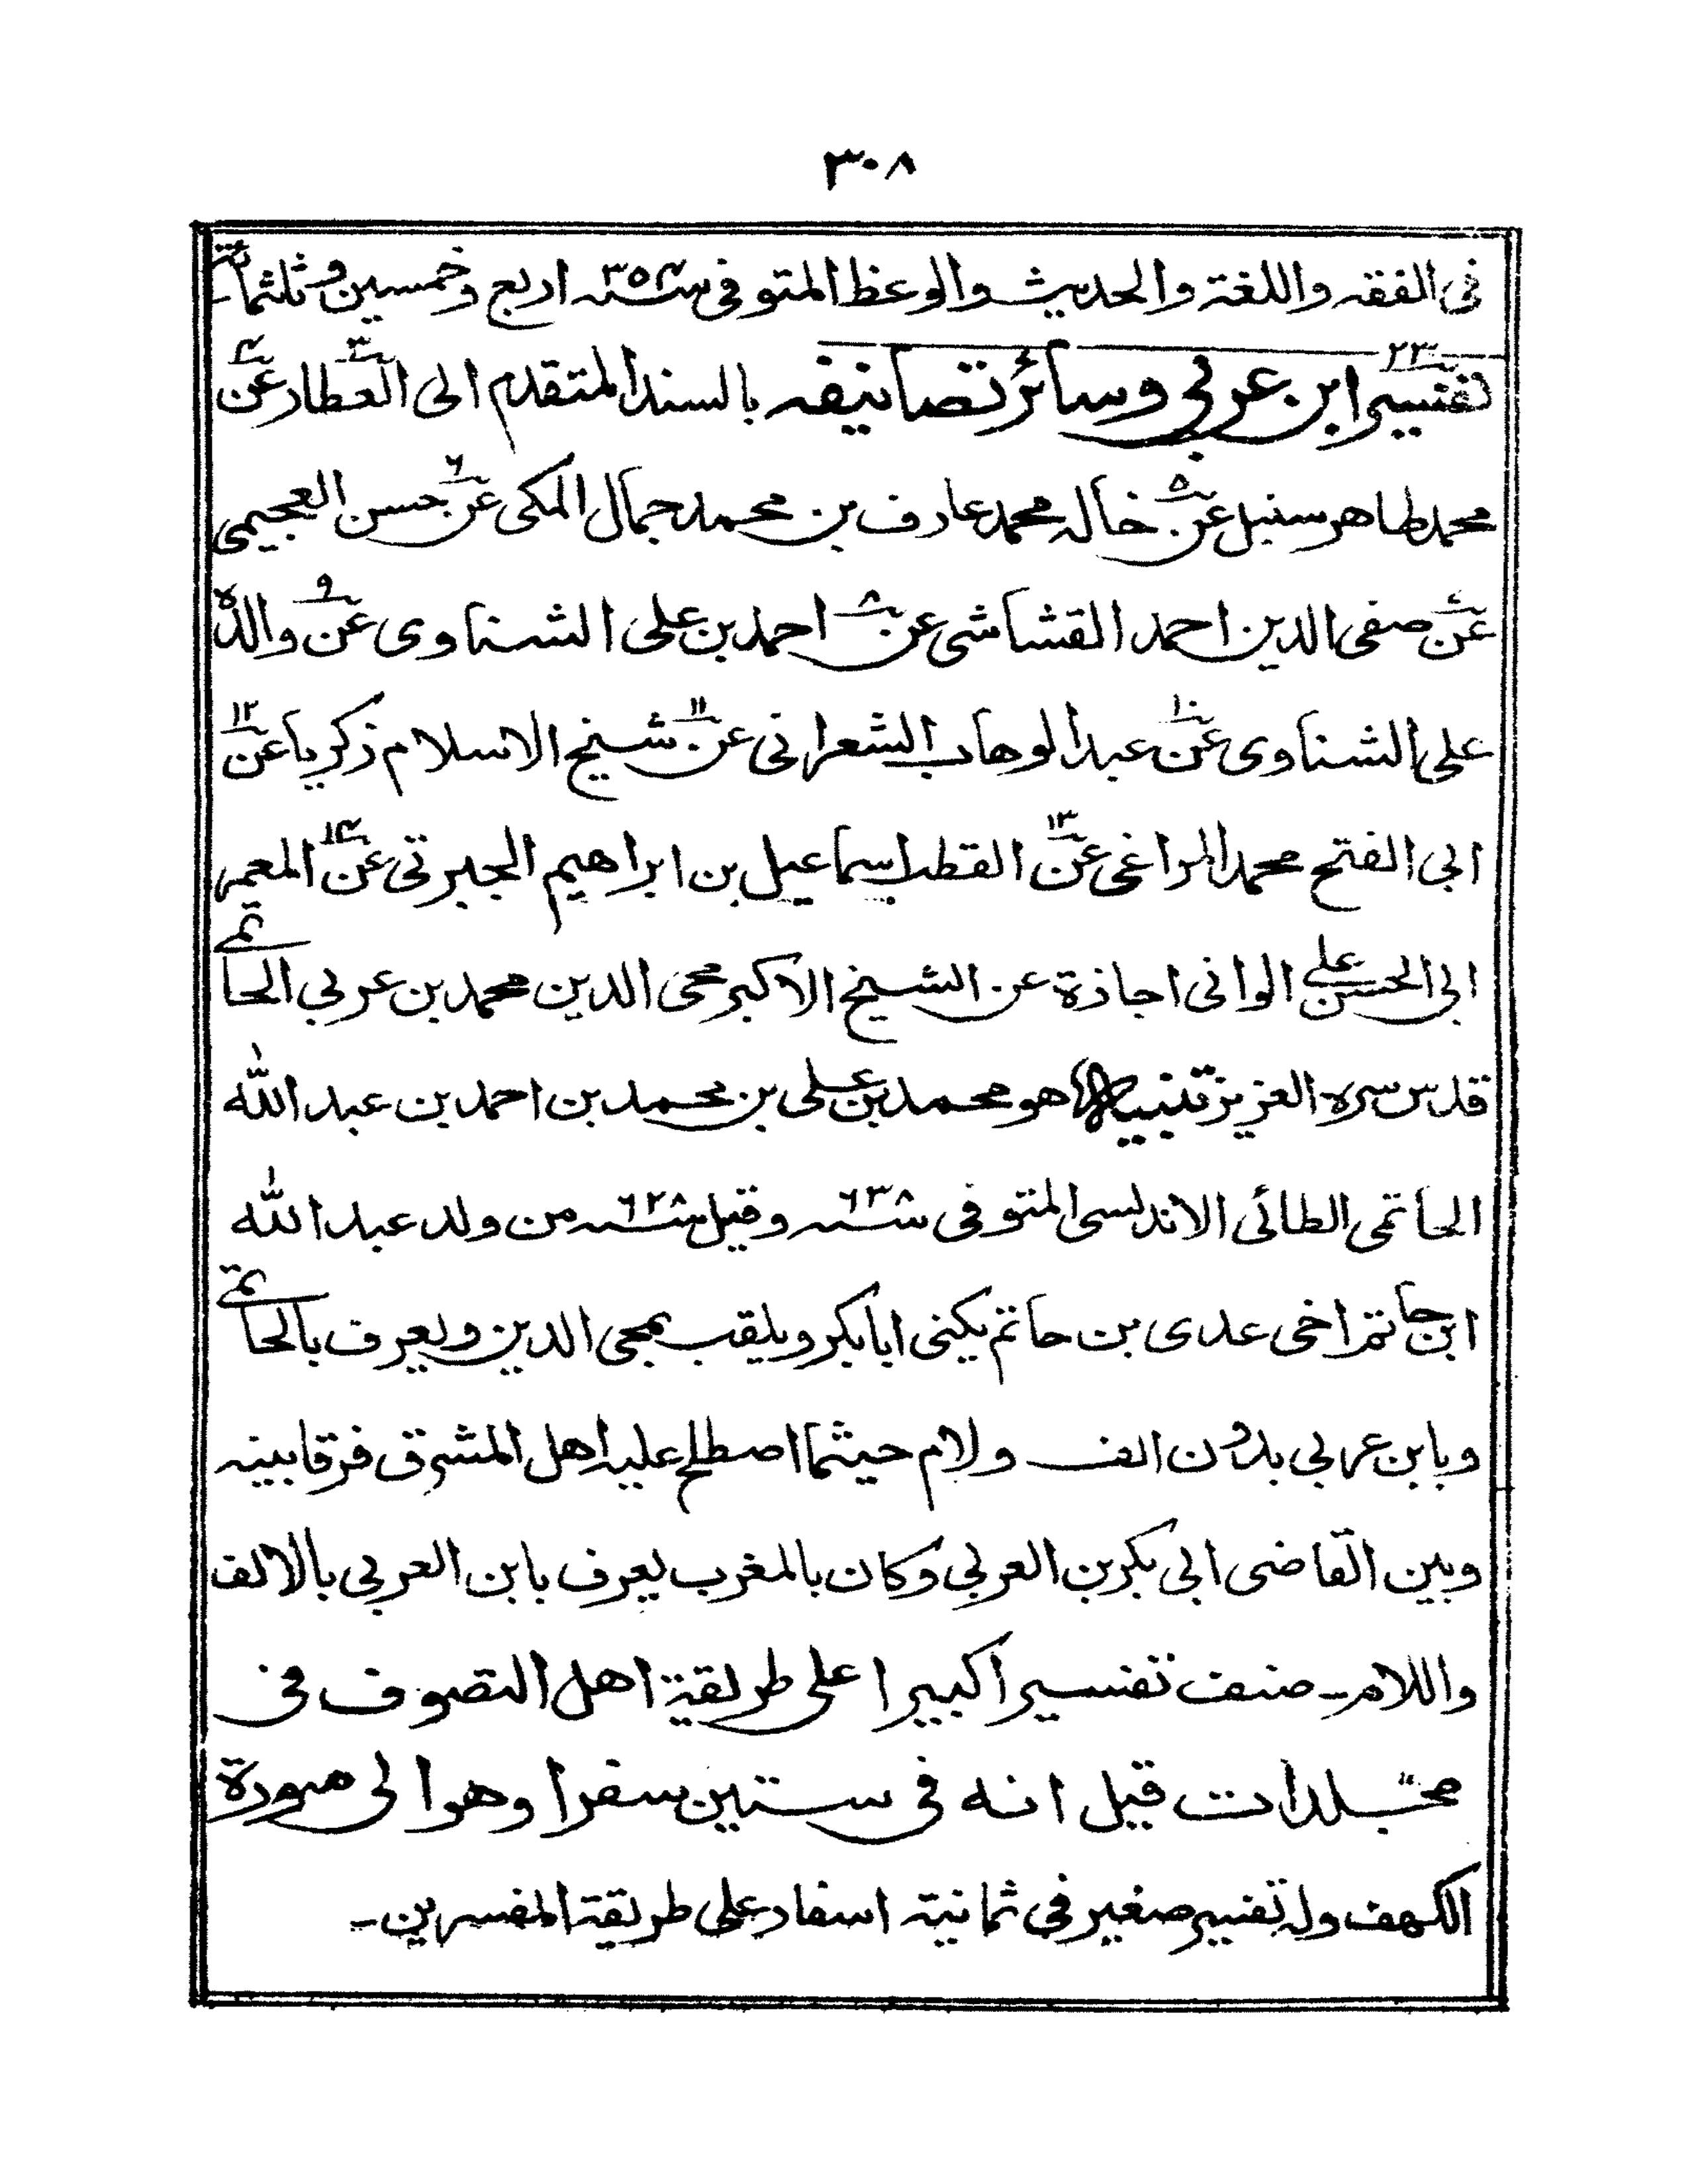 ٣٠٨
في الفقه واللغة والحديث والوعظ المتوفى سنه ٣٥٤ اربع وخمسين وثلثمائة
٢٣
تفسير ابن عربي وسائر تصانيفه بالسند المتقدم الى العطار ٣ عن ٤
محمد طاهر سنبل عن ٥ خاله محمد عارف بن محمد جمال المكى عن ٦ حسن العجيمى
عن صفى الدين احمد القشاشى عن ٨ احمد بن على الشناوى عن ٩ والده
على الشناوى عن ١٠ عبد الوهاب الشعرانى عن ١١ شيخ الاسلام زكريا عن ١٢
ابى الفتح محمد المراغى عن ١٣ القطب اسماعيل بن ابراهيم الجبرتى عن ١٤ المعمر
ابى الحسن على الوانى اجازة عن الشيخ الاكبر محى الدين محمد بن عربي الحاتمى
قدس سره العزيز تنبيه هو محمد بن على بن محمد بن احمد بن عبد الله
الحاتمى الطائى الاندلسى المتوفى سنه ٦٣٨ وقيل سنه ٦٢٨ من ولد عبد الله
ابن حاتم اخى عدى بن حاتم يكنى ابا بكر ويلقب بمحى الدين ويعرف بالحاتمى
وبابن عربي بدون الف ولام حيثما اصطلح عليه اهل المشرق فرقا بينه
وبين القاضى ابى بكر بن العربي وكان بالمغرب يعرف بابن العربي بالالف
واللام۔ صنف تفسيرا كبيرا على طريقة اهل التصوف فى
مجلدات قيل انه فى ستين سفرا وهو الى سورة
الكهف وله تفسير صغير فى ثمانية اسفار على طريقة المفسرين۔